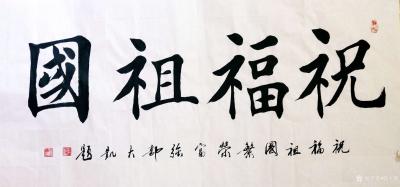 祝福祖國
祝福祖國繁榮富強郭大凱題